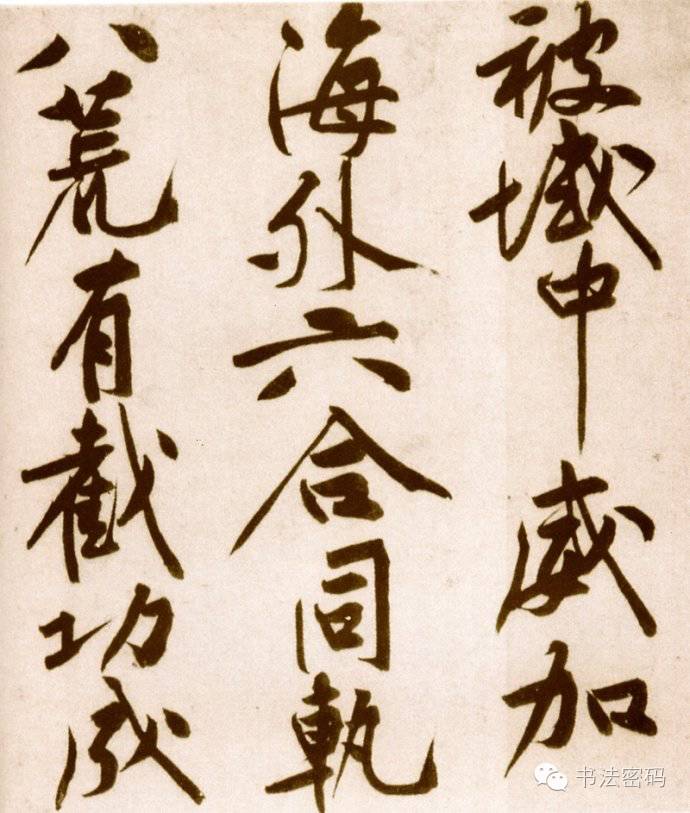 被域中威加
海外六合同軌
八荒有截功成
书法密码